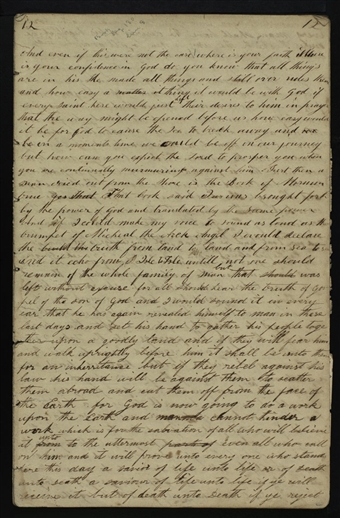 12 12
And even if this were not the case where is your faith where
is your confidence in God do you know that all things
are in his He made all things and shall over rules them
and how easy a matter of thing it would be with God if
every saint here would just their desire to him in pray
that the way might be opened before us how easy would
it be for God to cause the Ice to break away and we
be on a moments time we could be off on our journey
but how can you expect the Lord to prosper you when
you are continually murmuring against him Just then a
man cried out from the shore is the Book of Mormon
true That book said
by the power of God and translated by the same power
And if I could make my voice to sound as loud as the
trumpet of Micheal the Arch Angel I would declare
the truth from land to land and from Sea to
and it echo from Isle to Isle untill not one should
remain of the whole family of man but should was
left without excuse for all should hear the truth of Gos
pel of the son of God and I would sound it in every
ear that he has again revealed himself to man in these
last days and set his hand to gather his people toge
ther upon a goodly land and if they will fear him
and walk uprightly before him it shall be unto them
for an inheritance but if they rebel against his
law his hand will be against them to scatter
them abroad and cut them off from the face of
the Earth for God is now going to do a work
upon the Earth and man cannot hinder a
work which is for the salvation of all who will believe
it unto to the uttermost even all who call
on him and it will prove unto every one who stand
here this day a savior of life unto life or of death
unto death a saviour of life unto life if ye will
receive it but of death unto death if ye reject